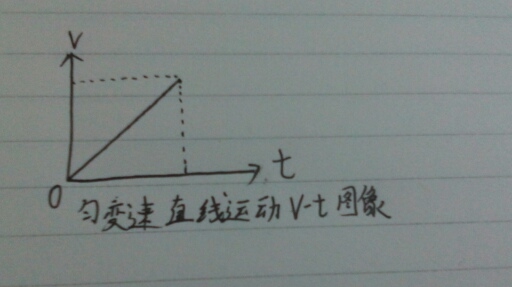 V
t
0
匀变速直线运动V-t图像